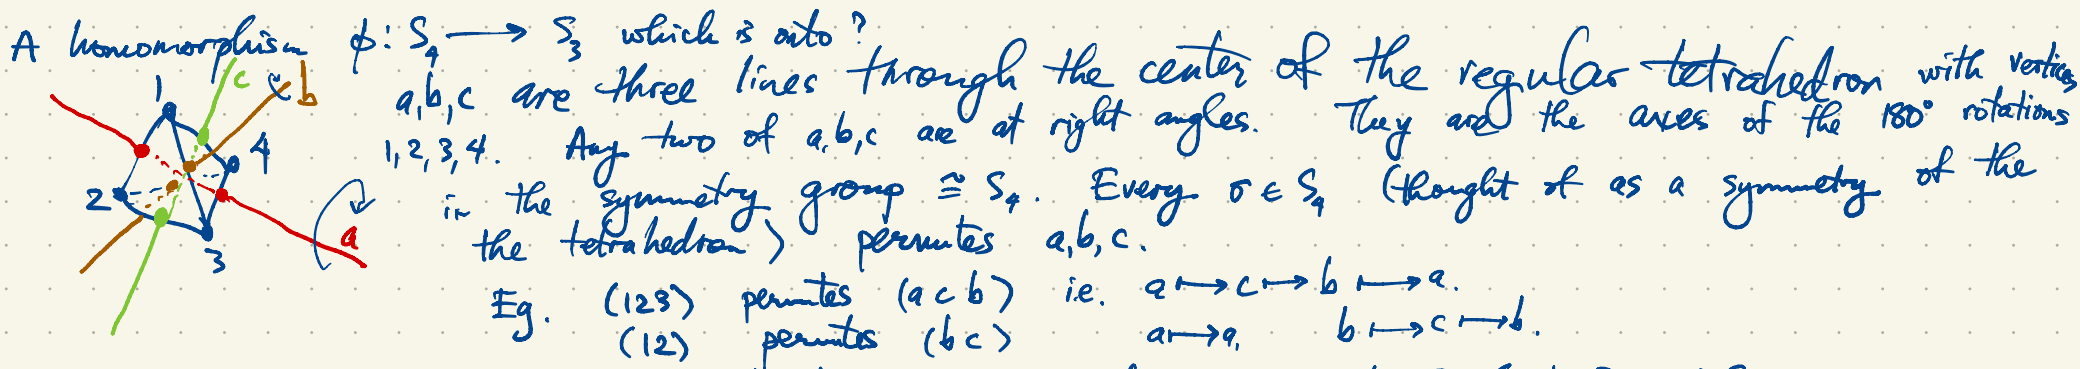 A homomorphism ϕ: S₄ ⟶ S₃ which is onto?
a,b,c are three lines through the center of the regular tetrahedron with vertices
1,2,3,4. Any two of a,b,c are at right angles. They are the axes of the 180° rotations
in the symmetry group ≅ S₄. Every σ ∈ S₄ (thought of as a symmetry of the
the tetrahedron) permutes a,b,c.
Eg. (123) permutes (a c b) i.e. a ↦ c ↦ b ↦ a.
(12) permutes (b c) a ↦ a, b ↦ c ↦ b.
c
b
1
4
2
3
a